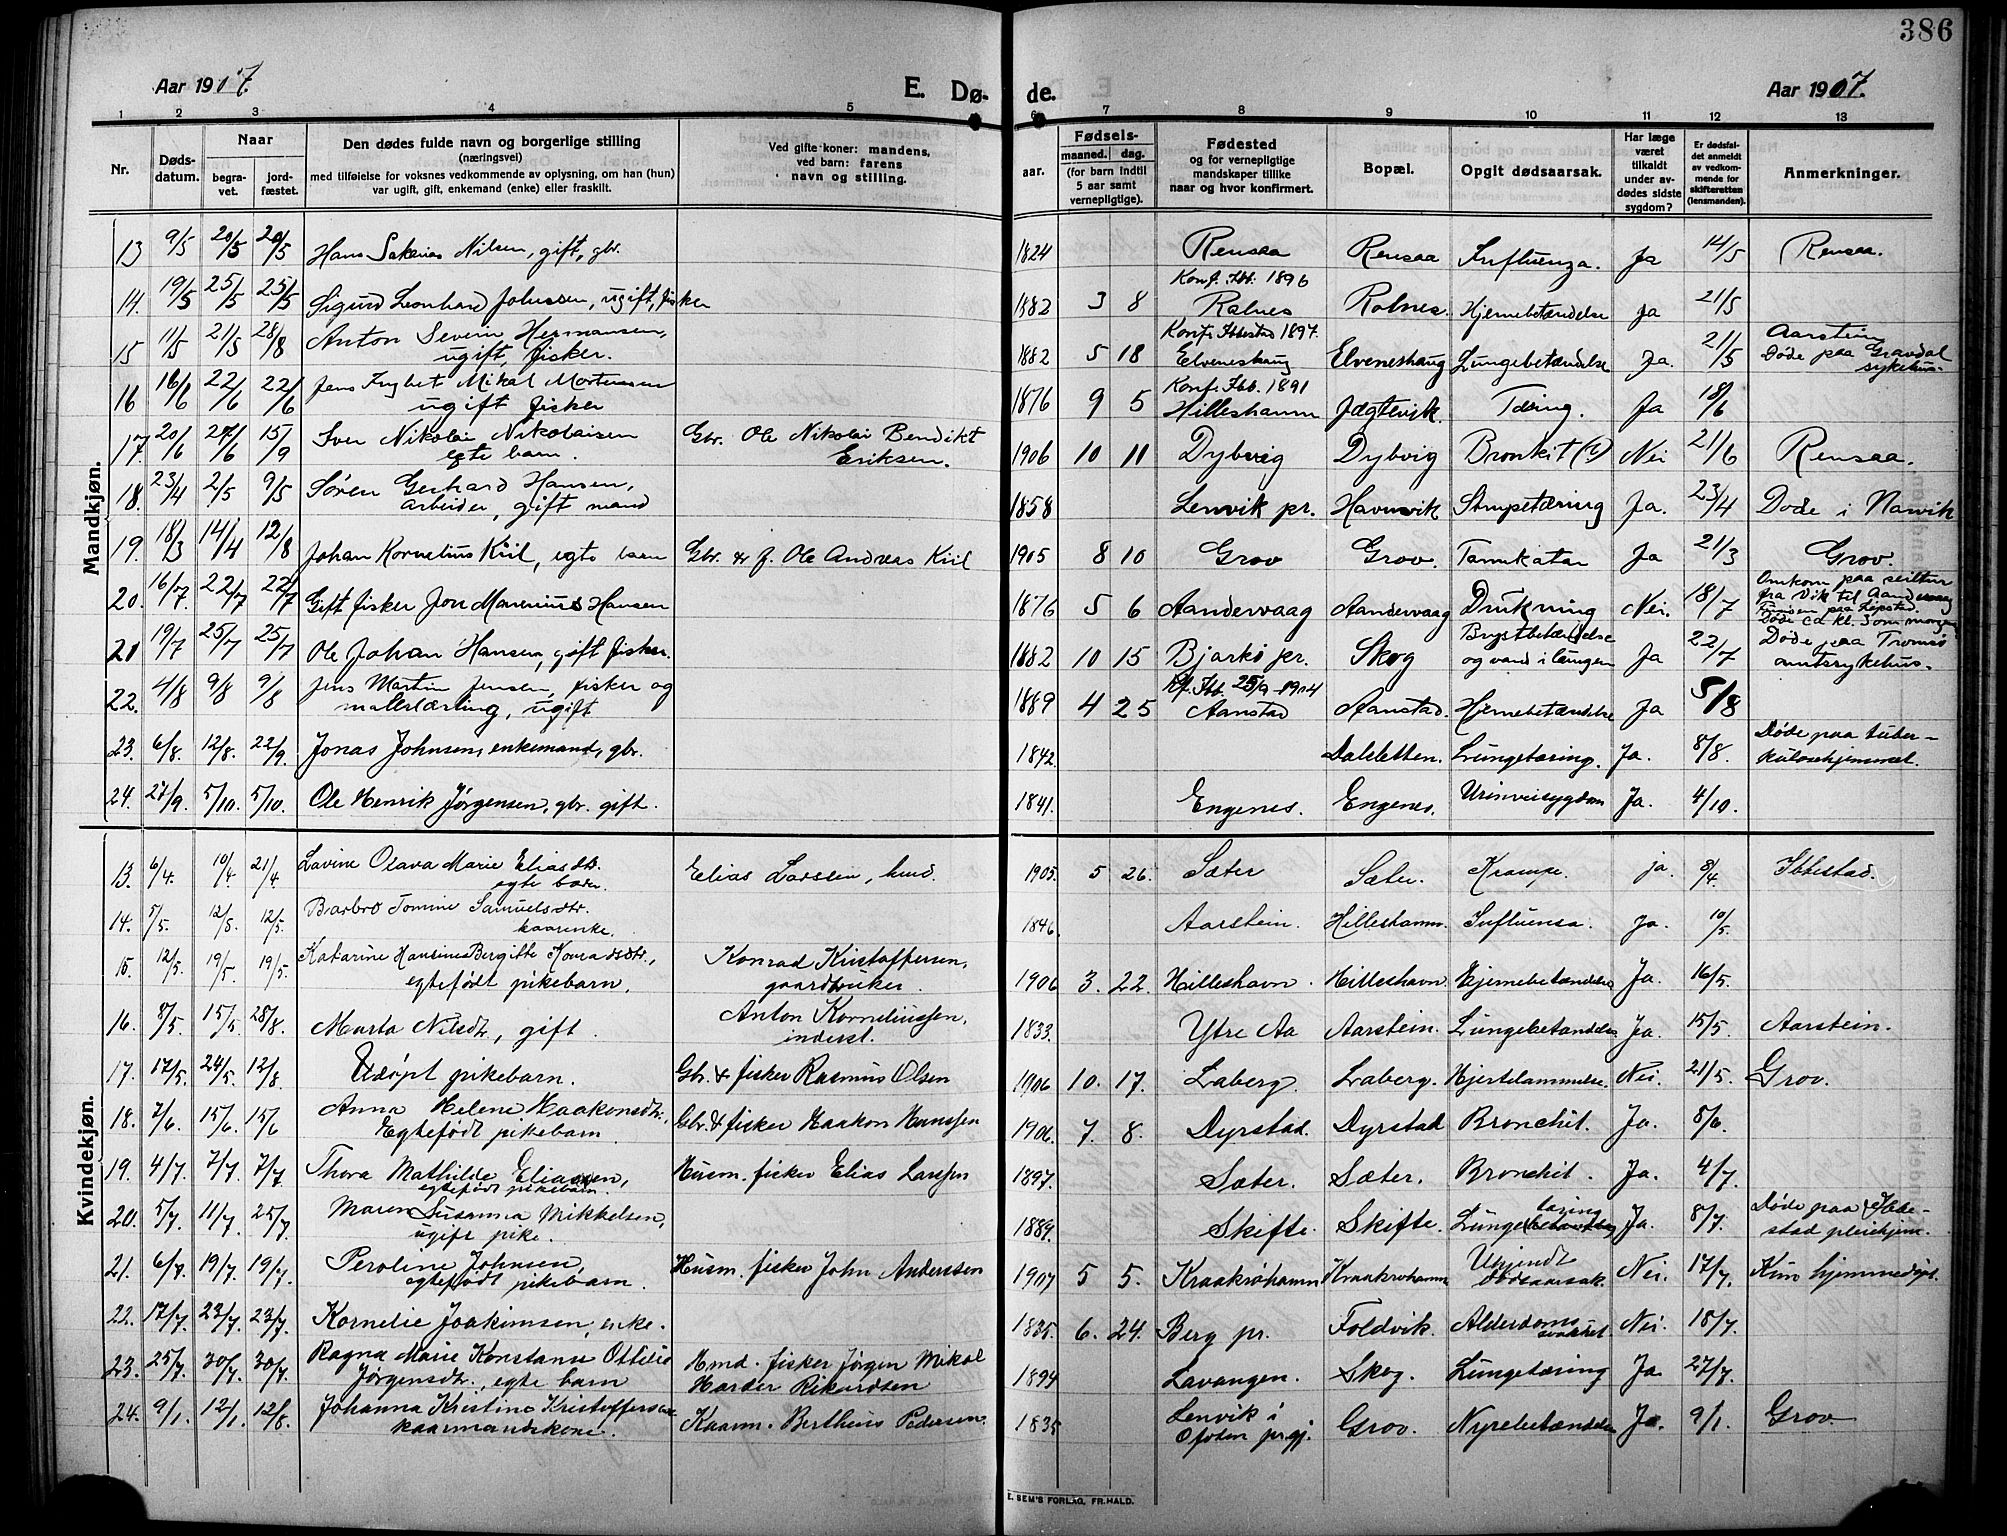 386
Aar 1907.
E. Dø- de.
Aar 1907.
1 2 3 4 5 6 7 8 9 10 11 12 13
Nr.
Døds-
datum.
Naar
begra-
vet.
jord-
fæstet.
Den dødes fulde navn og borgerlige stilling
(næringsvei)
med tilføielse for voksnes vedkommende av oplysning, om han (hun)
var ugift, gift, enkemand (enke) eller fraskilt.
Ved gifte koner: mandens,
ved barn: farens
navn og stilling.
Fødsels-
aar.
maaned. dag.
(for barn indtil
5 aar samt
vernepligtige).
Fødested
og for vernepligtige
mandskaper tillike
naar og hvor konfirmert.
Bopæl.
Opgit dødsaarsak.
Har læge
været
tilkaldt
under av-
dødes sidste
sygdom?
Er dødsfal-
det anmeldt
av vedkom-
mende for
skifteretten
(lensmanden).
Anmerkninger.
Mandkjøn.
13 9/5 20/5 20/5 Hans Sakarias Nilsen, gift, gbr. 1824 Rensaa Rensaa Influenza. Ja 14/5 Rensaa.
Konf. Ibb. 1896
14. 19/5 25/5 25/5 Sigurd Leonhard Johnsen, ugift, fisker 1882 3 8 Rolnes Rolnes. Hjernebetændelse Ja 21/5
15 11/5 21/5 28/8 Anton Severin Hermansen, Konf. Ibbestad 1897. Aarstein
ugift, fisker. 1882 5 18 Elveneshaug Elveneshaug Lungebetændelse Ja. 21/5 Døde paa Gravdal
sykehus.
16 16/6 22/6 22/6 Jens Ingbet Mikal Mortensen Konf. Ibb. 1891
ugift fisker 1876 9 5 Hilleshamn Jægtevik. Tæring. Ja 18/6
17. 20/6 24/6 15/9 Iver Nikolai Nikolaisen Gbr. Ole Nikolai Bendikt
egte barn. Eriksen. 1906 10 11 Dybvig Dybvig Bronkit (?) Nei 21/6 Rensaa.
18. 23/4 2/5 9/5 Søren Gerhard Hansen,
arbeider, gift mand 1858 Lenvik pr. Havnvik Strupetæring Ja. 23/4 Døde i Narvik
19. 18/3 14/4 12/8 Johan Kornelius Kiil, egte barn Gbr. & f. Ole Andreas Kiil 1905 8 10 Grov Grov. Ja 21/3 Grov.
20. 16/7. 22/7 22/7 Gift fisker Jon Marenius Hansen 1876 5 6 Aandervaag Aandervaag Drukning Nei. 18/7 Omkom paa seiltur
fra Vik til Aandervaag
21 19/7 25/7 25/7 Ole Johan Hansen, gift fisker. 1882 10 15 Bjarkø pr. Skog Brystbetændelse
og vand i lungen Ja 22/7 Døde paa Tromsø
amtssykehus.
22. 4/8 9/8 9/8 Jens Martin Jensen, fisker og Kf. Ibb. 25/9 1904
malerlærling, ugift 1889 4 25 Aanstad Aanstad. Hjernebetændelse Ja 5/8
23. 6/8. 12/8. 22/9. Jonas Johnsen, enkemand, gbr. 1842. Dalsletten. Lungetæring. Ja. 8/8. Døde paa tuber-
kulosehjemmet.
24. 27/9. 5/10. 5/10. Ole Henrik Jørgensen, gbr. gift. 1841. Engenes. Engenes. Urinveisygdom Ja. 4/10.
Kvindekjøn.
13. 6/4. 10/4. 21/4. Lavine Olava Marie Eliasdtr.
egte barn. Elias Larssen, husd. 1905. 5 26. Sæter Sæter. Krampe. ja. 8/4. Ibbestad.
14. 5/5. 12/5. 12/5. Barbro Tomine Samuelsdtr.
kaarenke. 1846. Aarstein. Hilleshamn. Influensa. Ja. 10/5.
15. 12/5. 19/5. 19/5. Katarine Hansine Bergitte Konradsdtr., Konrad Kristoffersen,
egtefødt pikebarn. gaardbruker. 1906 3. 22. Hilleshavn. Hilleshavn Hjernebetændelse Ja. 16/5.
16. 8/5. 15/5. 28/8. Marta Nilsdtr, gift. Anton Korneliussen,
inderst. 1833. Ytre Aa Aarstein. Lungebetændelse Ja. 15/5. Aarstein.
17. 17/5. 24/5. 12/8 Udøpt pikebarn. Gbr. & fisker Rasmus Olsen 1906 10. 17. Laberg. Laberg. Hjertelammelse. Nei. 21/5. Grov.
18. 7/6. 15/6. 15/6 Anna Helene Haakonsdtr.,
Egtefødt pikebarn Gbr. & fisker Haakon Hanssen 1906. 7. 8. Dyrstad. Dyrstad Bronchit. Ja. 8/6.
19. 4/7. 7/7. 7/7. Thora Mathilde Eliassen,
egtefødt pikebarn. Husm. fisker Elias Larssen 1897. Sæter. Sæter. Bronchit. Ja. 4/7.
20. 5/7. 11/7. 25/7 Maren Susanna Mikkelsen,
ugift pike. 1889. Skifte. Skifte. Lungetæring Ja. 8/7. Døde paa Ibbe-
stad pleiehjem.
21. 6/7 19/7. 19/7. Peroline Johnsen,
egtefødt pikebarn. Husm. fisker John Anderssen 1907 5 5. Kraakrøhamn Kraakrøhamn Ukjendt
dødsaarsak. Nei. 17/7. Kun hjemmedøpt.
22. 17/7. 23/7. 23/7. Kornelie Joakimsen, enke. 1835. 6. 24. Berg pr. Foldvik. Alderdoms
svakket. Nei. 18/7.
23. 25/7. 30/7. 30/7. Ragna Marie Konstanse Ottilie Hmd. fisker Jørgen Mikal
Jørgensdtr., egte barn Harder Rikardsen 1894 Lavangen. Skog. Lungetæring Ja. 27/7.
24. 9/1. 12/1. 12/8. Johanna Kristine Kristoffersen
kaarmandskone. Kaarm. Bertheus Pedersen. 1835 Lenvik i
Ofoten prgj. Grov. Nyrebetændelse Ja. 9/1. Grov.
E. SEM'S FORLAG, FR.HALD.